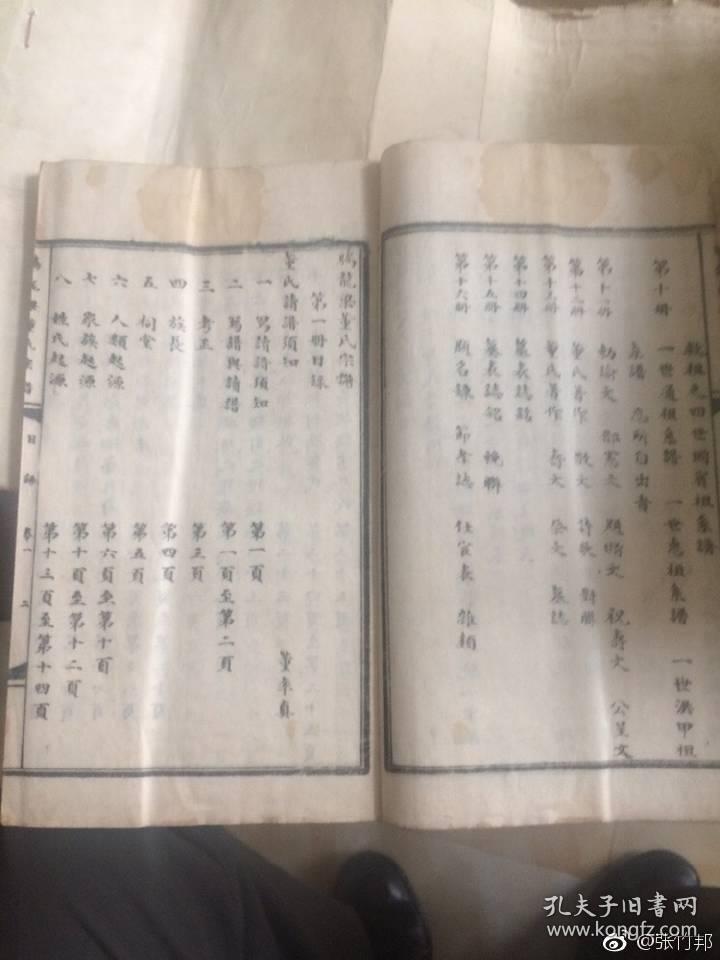 啟祖先四世開賓祖系譜
第十冊 一世道祖系譜 一世惠祖系譜 一世洪甲祖
系譜 忘所自出者
勅諭文 郎憲文 題蹟文 祝壽文 公呈文
第十二冊 董氏著作 散文 詩歌 對聯
第十三冊 董氏著作 壽文 祭文 墓誌
第十四冊 墓表誌銘
第十五冊 墓表誌銘 輓聯
第十六冊 題名錄 節孝誌 仕宦表 雜類
騰龍梁董氏宗譜
第一冊目錄
董氏請譜須知 董奉真
一 寫請譜須知 第一頁
二 寫譜與請譜 第一頁至第二頁
三 考正 第三頁
四 族長 第四頁
五 祠堂 第五頁
六 人類起源 第六頁至第十頁
七 家族起源 第十頁至第十二頁
八 姓氏起源 第十三頁至第十四頁
董氏宗譜 目錄 卷一 二
孔夫子旧书网
www.kongfz.com
@张竹邦